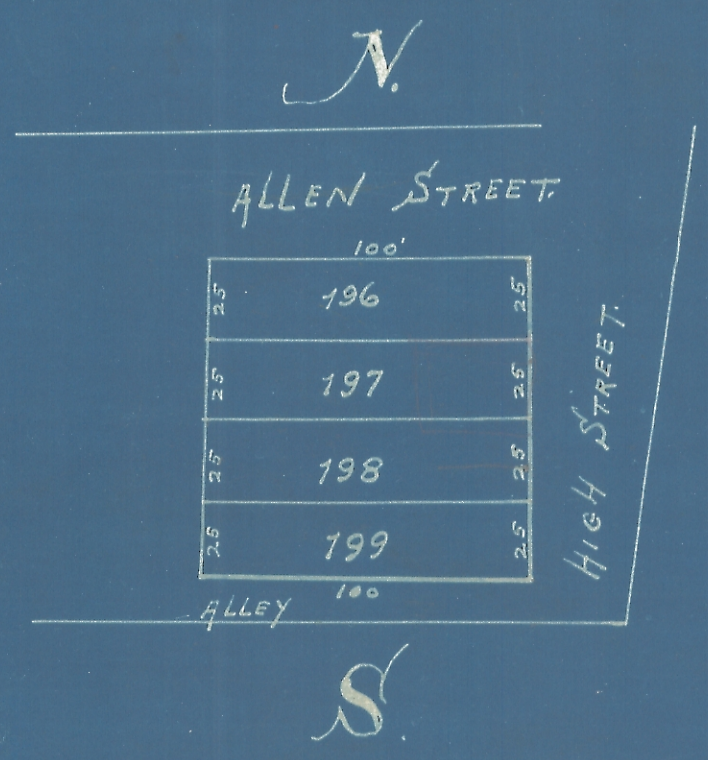 N.
ALLEN STREET.
100'
25 196 25
25 197 25
25 198 25
25 199 25
100
ALLEY
HIGH STREET.
S.